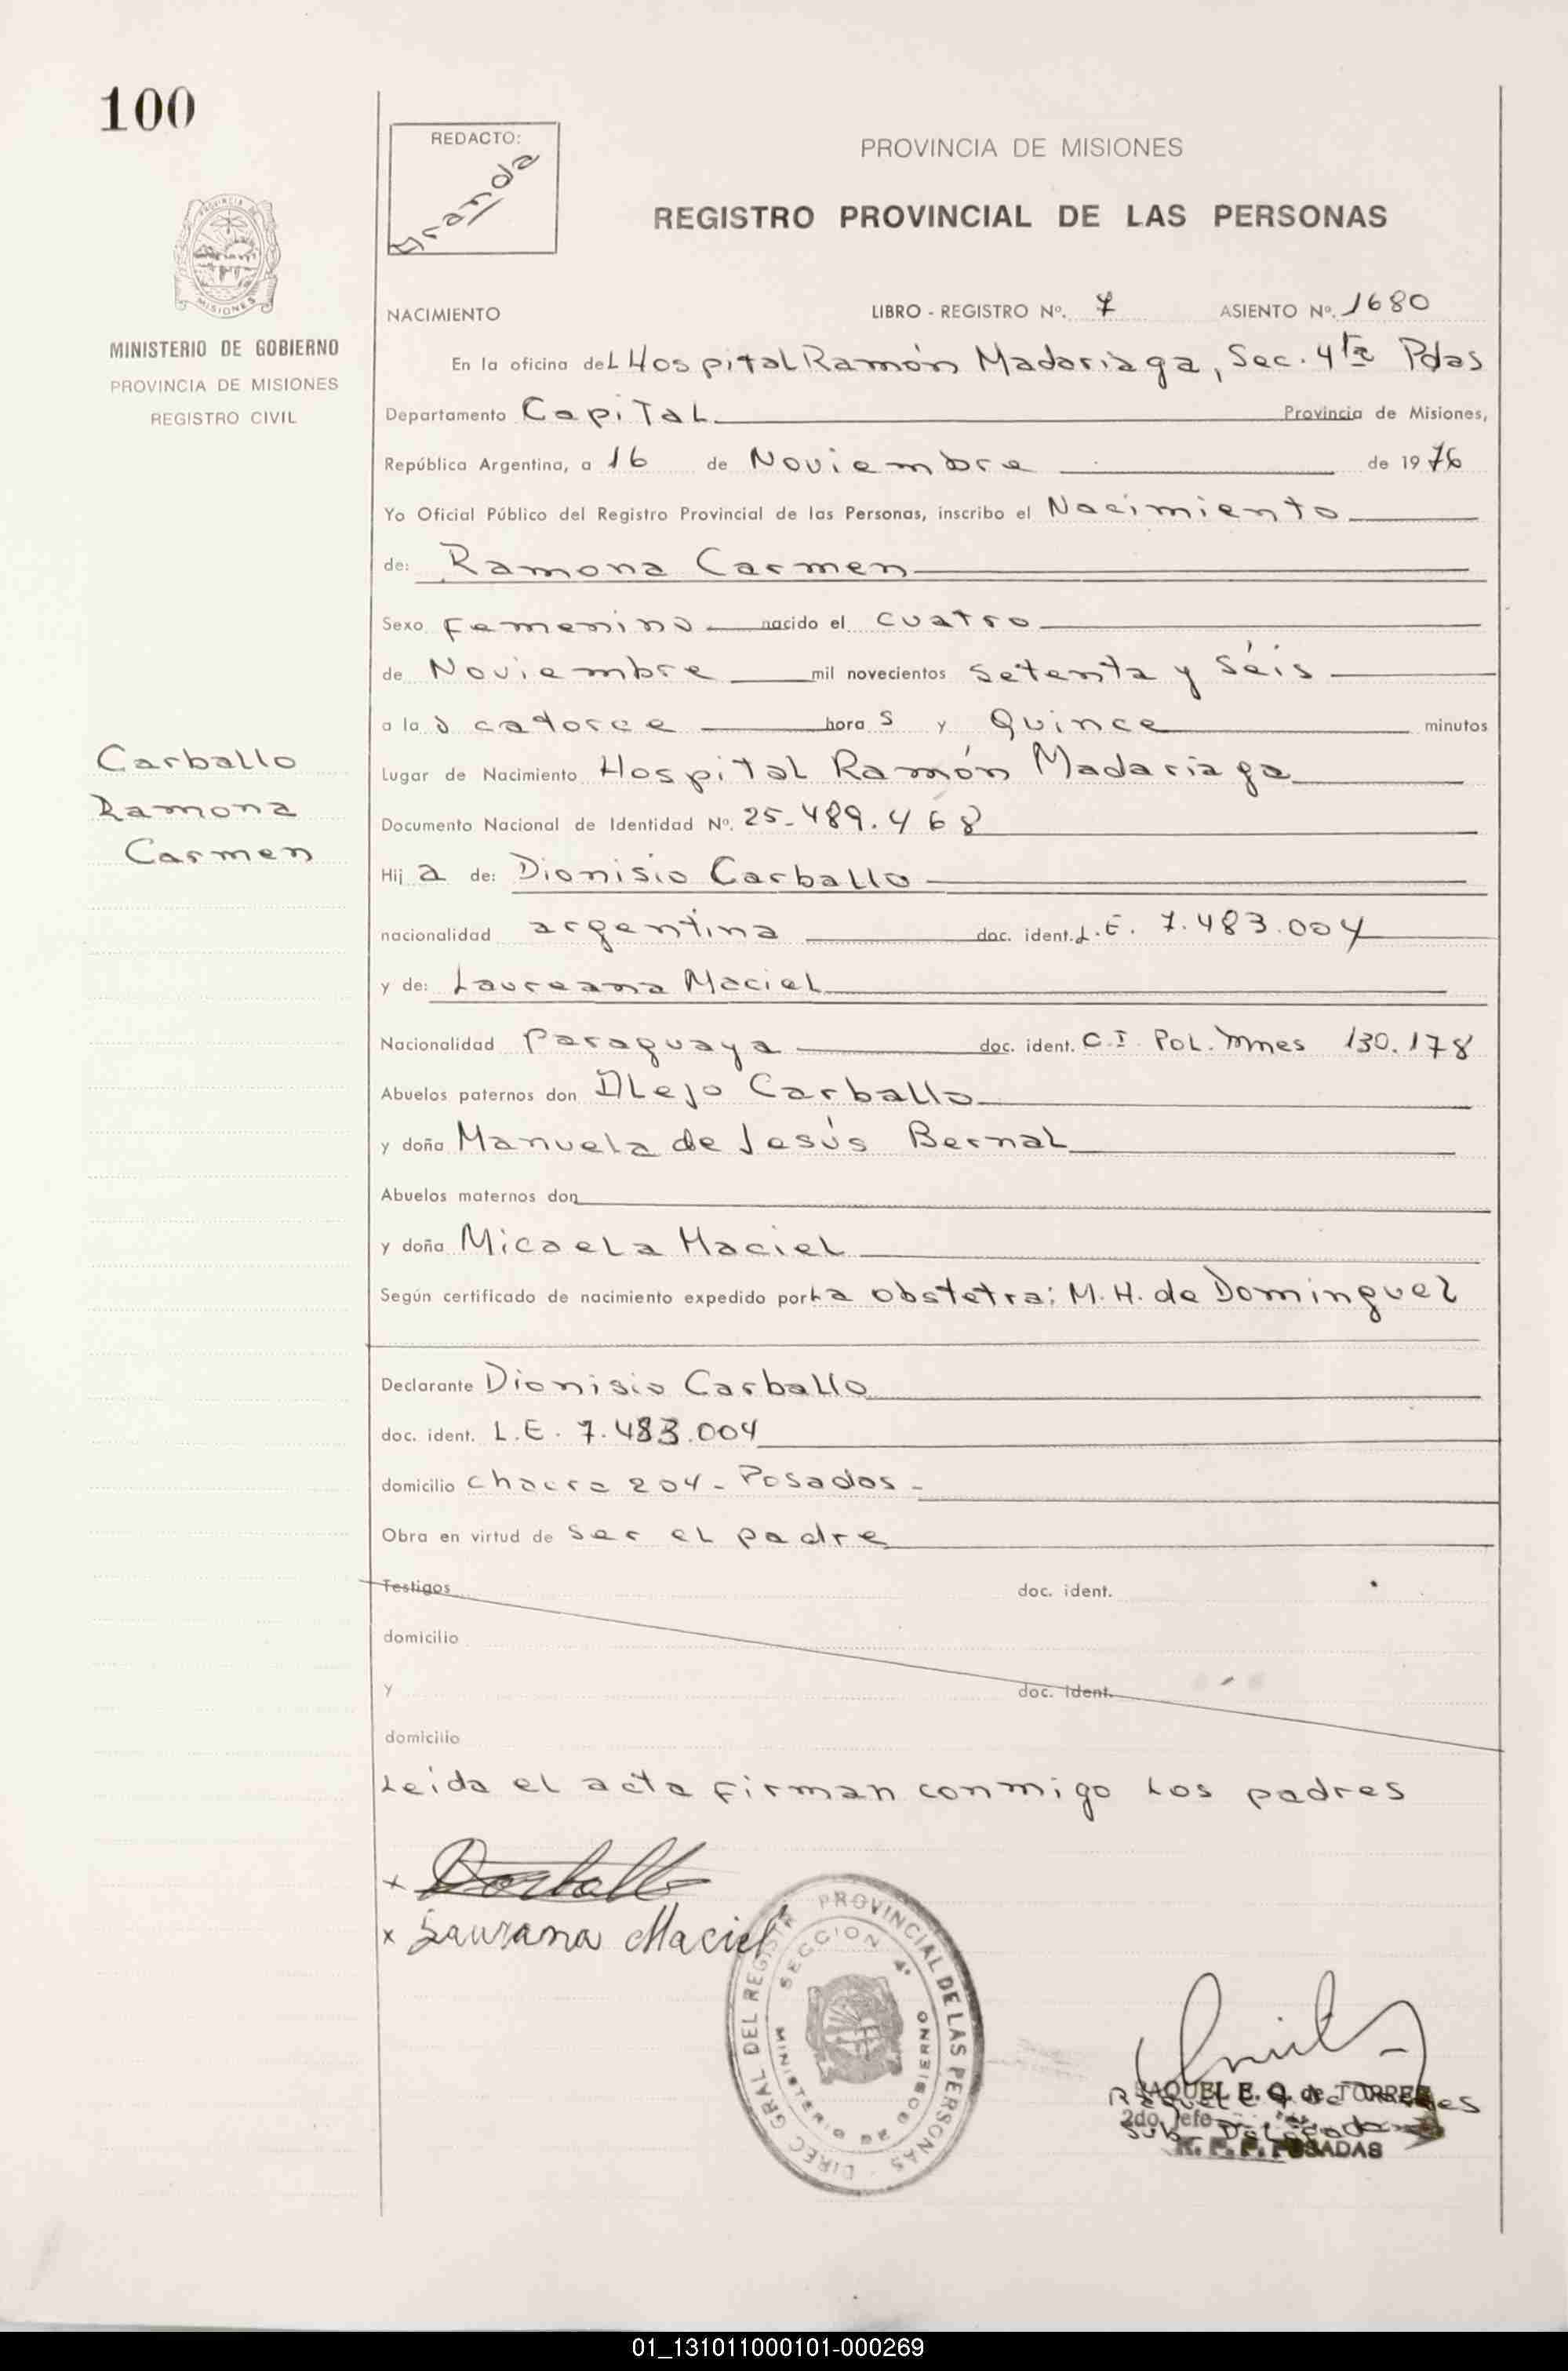 100
REDACTO:
Aranda
PROVINCIA DE MISIONES
REGISTRO PROVINCIAL DE LAS PERSONAS
PROVINCIA DE
MISIONES
MINISTERIO DE GOBIERNO
PROVINCIA DE MISIONES
REGISTRO CIVIL
NACIMIENTO LIBRO - REGISTRO Nº. 7 ASIENTO Nº. 1680
En la oficina del Hospital Ramón Madariaga, Sec. 4ta Pdas
Departamento Capital Provincia de Misiones,
República Argentina, a 16 de Noviembre de 1976
Yo Oficial Público del Registro Provincial de las Personas, inscribo el Nacimiento
de: Ramona Carmen
Sexo femenino nacido el cuatro
de Noviembre mil novecientos setenta y séis
a la s catorce hora s y Quince minutos
Carballo
Ramona
Carmen
Lugar de Nacimiento Hospital Ramón Madariaga
Documento Nacional de Identidad Nº. 25-489.468
Hij a de: Dionisio Carballo
nacionalidad argentina doc. ident. L.E. 7.483.004
y de: Laureana Maciel
Nacionalidad Paraguaya doc. ident. C.I. Pol. Mnes 130.178
Abuelos paternos don Alejo Carballo
y doña Manuela de Jesús Bernal
Abuelos maternos don
y doña Micaela Maciel
Según certificado de nacimiento expedido por la obstetra: M. H. de Dominguez
Declarante Dionisio Carballo
doc. ident. L.E. 7.483.004
domicilio chacra 204 - Posadas -
Obra en virtud de ser el padre
Testigos doc. ident.
domicilio
y doc. ident.
domicilio
Leida el acta firman conmigo los padres
x Carballo
x Laurana Maciel
DIREC GRAL DEL REGISTR PROVINCIAL DE LAS PERSONAS
SECCION 4ª
MINISTERIO DE GOBIERNO
RAQUEL E. Q. de TORRES
2do. Jefe
Sub- Delegada
R. P. P. POSADAS
01_131011000101-000269